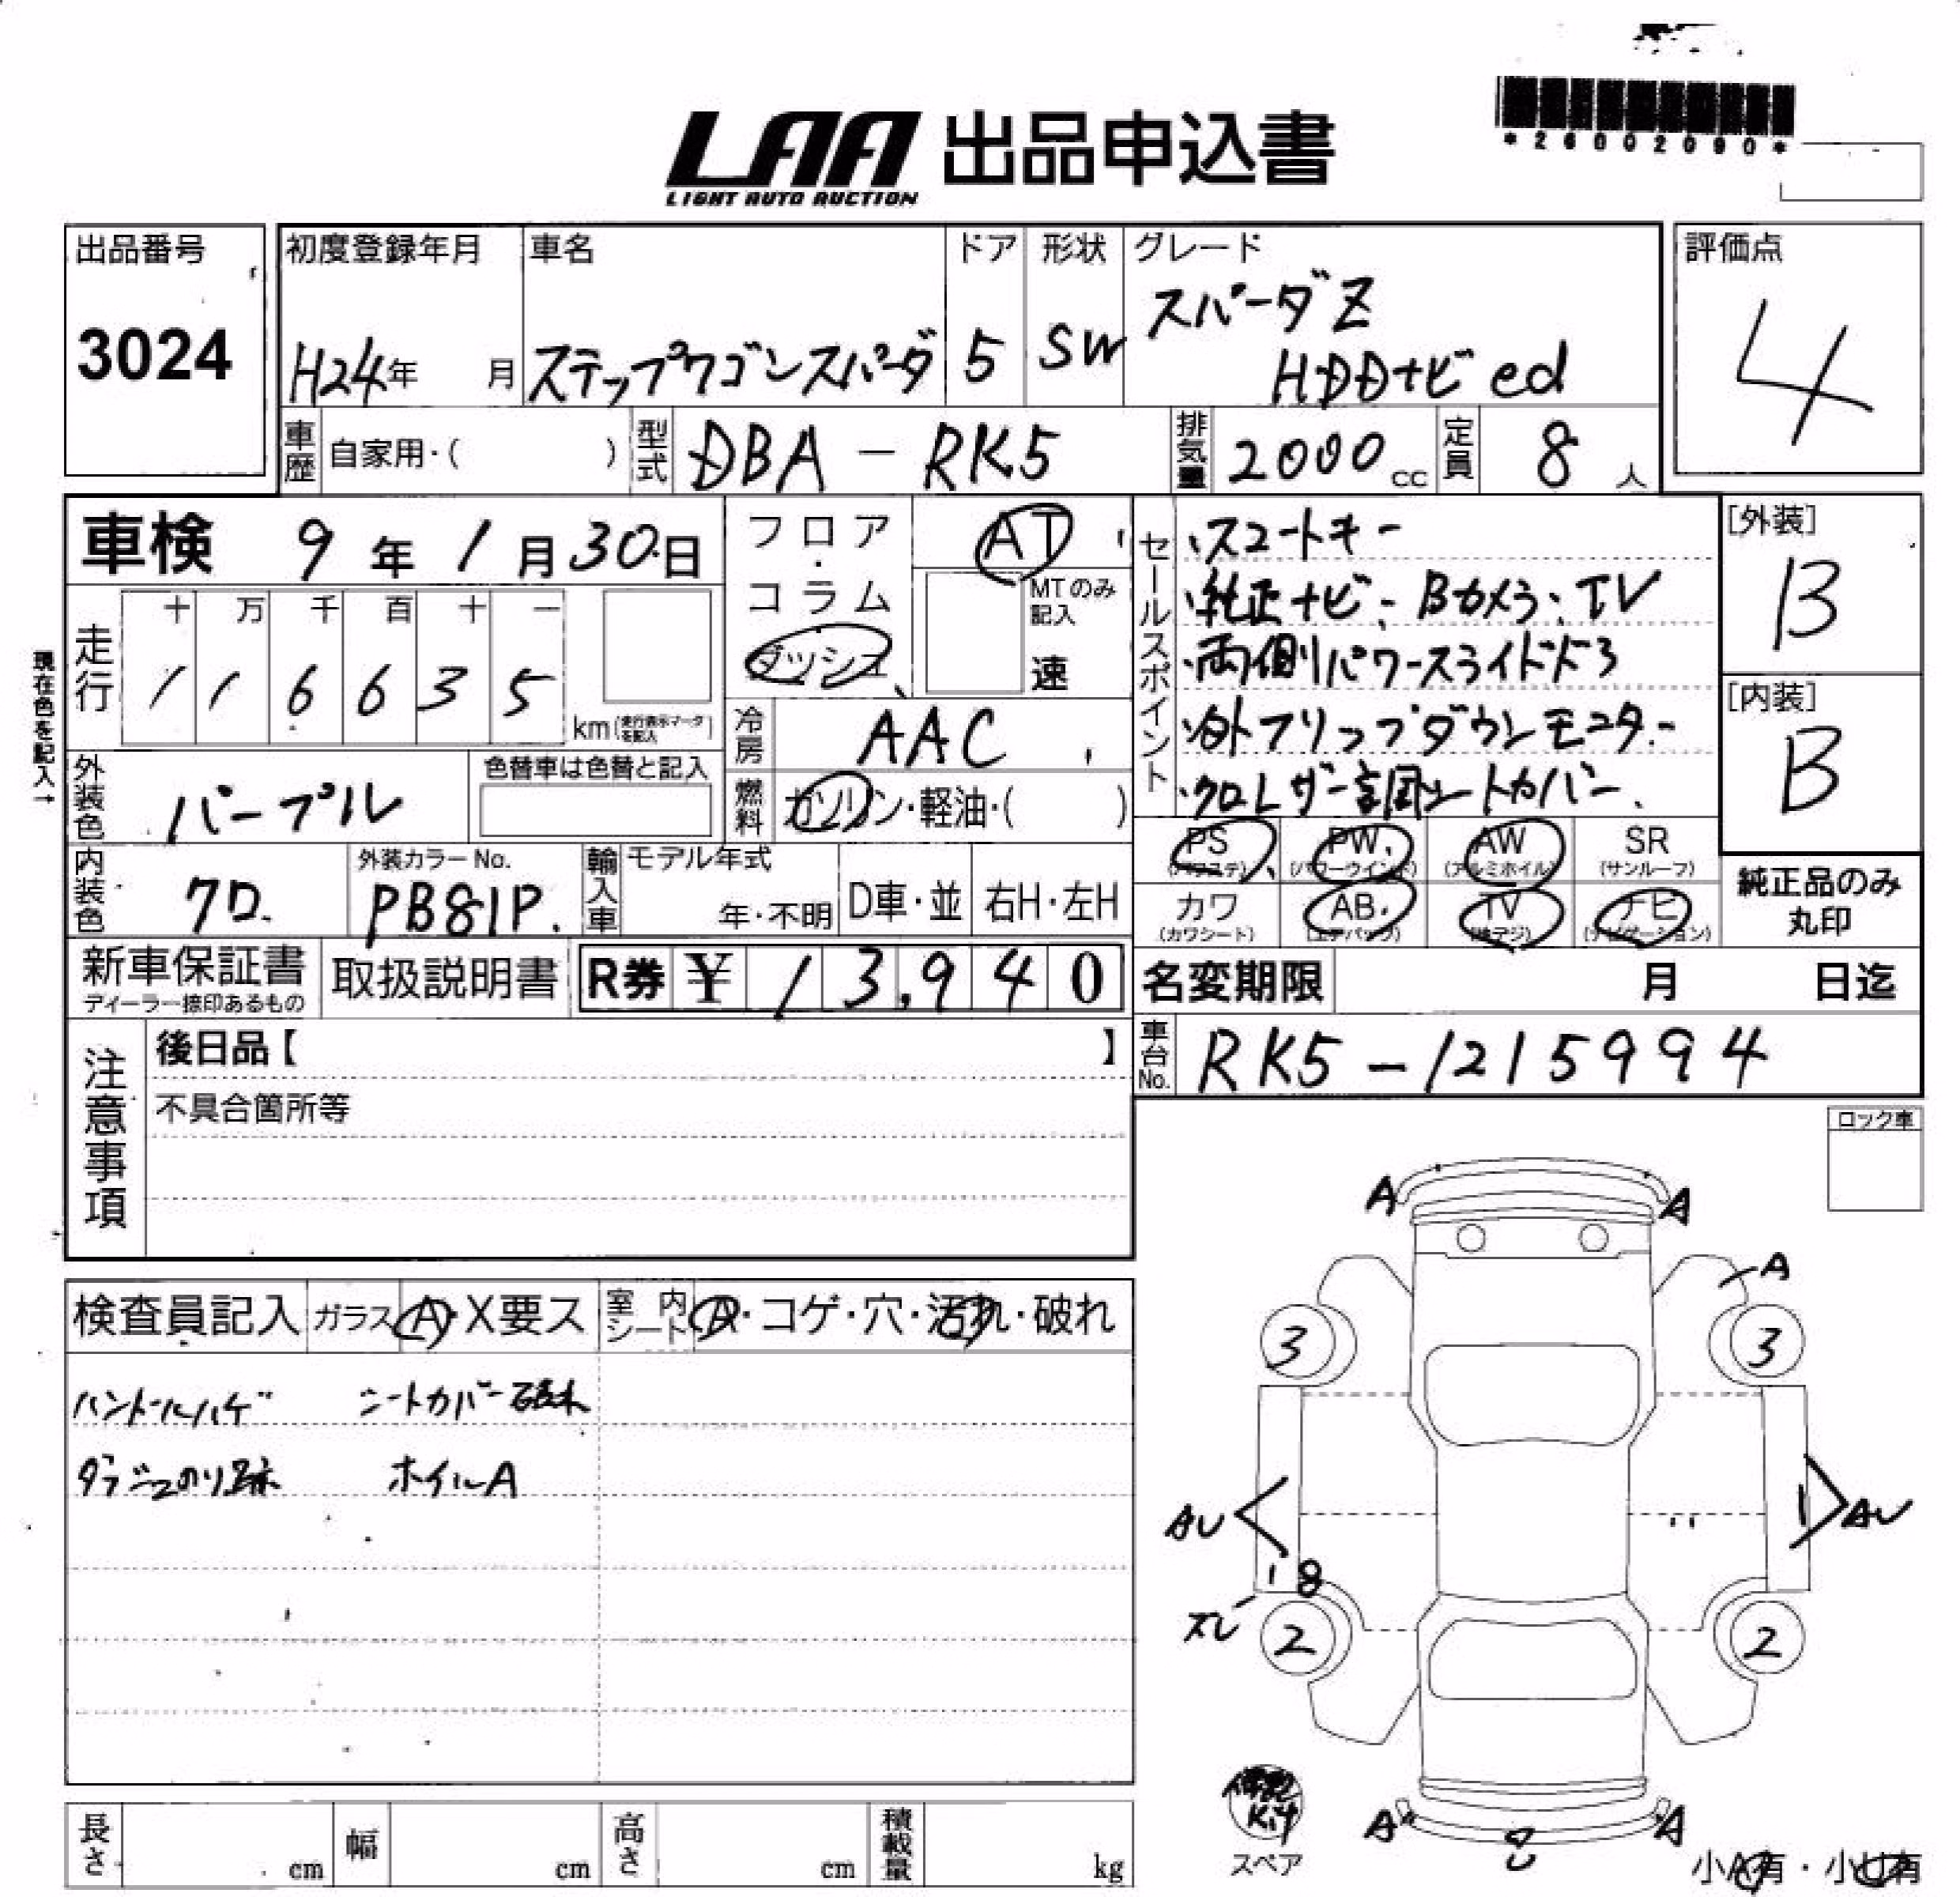 *26002090*
LAA 出品申込書
LIGHT AUTO AUCTION
出品番号
3024
初度登録年月
H24年 月
車名
ステップワゴンスパーダ
ドア
5
形状
SW
グレード
スパーダZ
HDDナビ ed
評価点
4
車歴 自家用・( )
型式 DBA-RK5
排気量 2000cc
定員 8人
車検 9年1月30日
フロア・コラム
ダッシュ
AT
MTのみ記入
速
セールスポイント
・スマートキー
・純正ナビ・Bカメラ・TV
・両側パワースライドドア
・外フリップダウンモニター
・クロレザー調シートカバー
[外装]
B
[内装]
B
現在色を記入→
走行
十 万 千 百 十 一
1 1 6 6 3 5
km(走行表示マークを記入)
冷房 AAC
外装色 パープル
色替車は色替と記入
燃料 ガソリン・軽油・( )
PS (パワステ)
PW (パワーウインド)
AW (アルミホイル)
SR (サンルーフ)
カワ (カワシート)
AB (エアバッグ)
TV (地デジ)
ナビ (ナビゲーション)
純正品のみ
丸印
内装色 クロ
外装カラーNo.
PB81P
輸入車
モデル年式
年・不明
D車・並
右H・左H
新車保証書
ディーラー捺印あるもの
取扱説明書
R券 ¥ 13,940
名変期限 月 日迄
車台No. RK5-1215994
注意事項
後日品【 】
不具合箇所等
ロック車
検査員記入 ガラス A・X要ス 室内シート A・コゲ・穴・汚れ・破れ
ハンドルハゲ シートカバー破れ
ダッシュのり跡 ホイルA
A A
A
3 3
AU AU
8
スレ
2 2
Kit
スペア
A A
長さ cm 幅 cm 高さ cm 積載量 kg
小A有・小U有